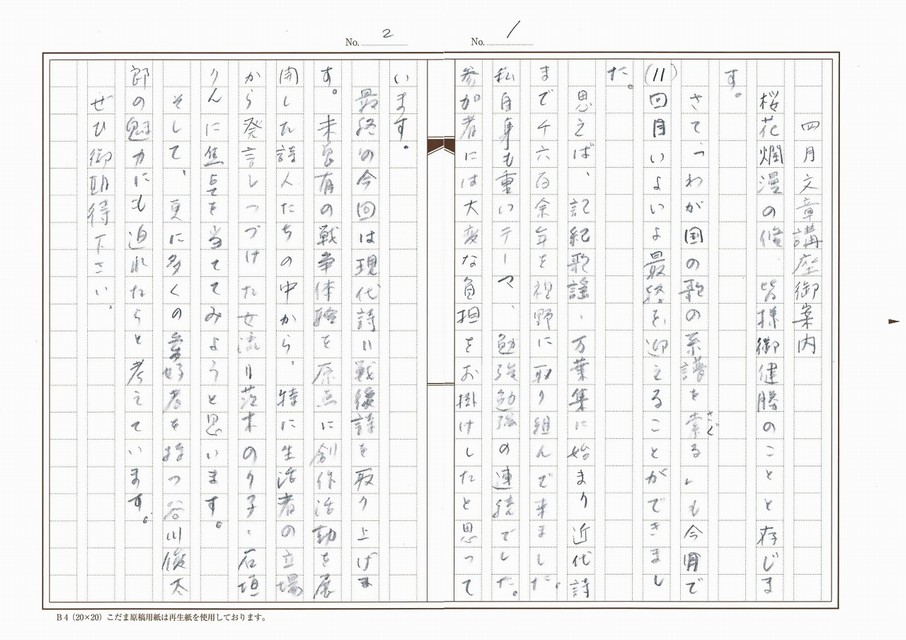 No. 1
四月文章講座御案内
桜花爛漫の候 皆様御健勝のことと存じま
す。
さて、「わが国の歌の系譜を索る」も今月で
さぐ
(11)回目いよいよ最終を迎えることができまし
た。
思えば、記紀歌謡・万葉集に始まり近代詩
まで千六百余年を視野に取り組んで来ました。
私自身も重いテーマ、勉強勉強の連続でした。
参加者には大変な負担をお掛けしたと思って
No. 2
います。
最終の今回は現代詩=戦後詩を取り上げま
す。未曽有の戦争体験を原点に創作活動を展
開した詩人たちの中から、特に生活者の立場
から発言しつづけた女流=茨木のり子・石垣
りんに焦点を当ててみようと思います。
そして、更に多くの愛好者を持つ谷川俊太
郎の魅力にも迫れたらと考えています。
ぜひ御期待下さい。
B4(20×20)こだま原稿用紙は再生紙を使用しております。